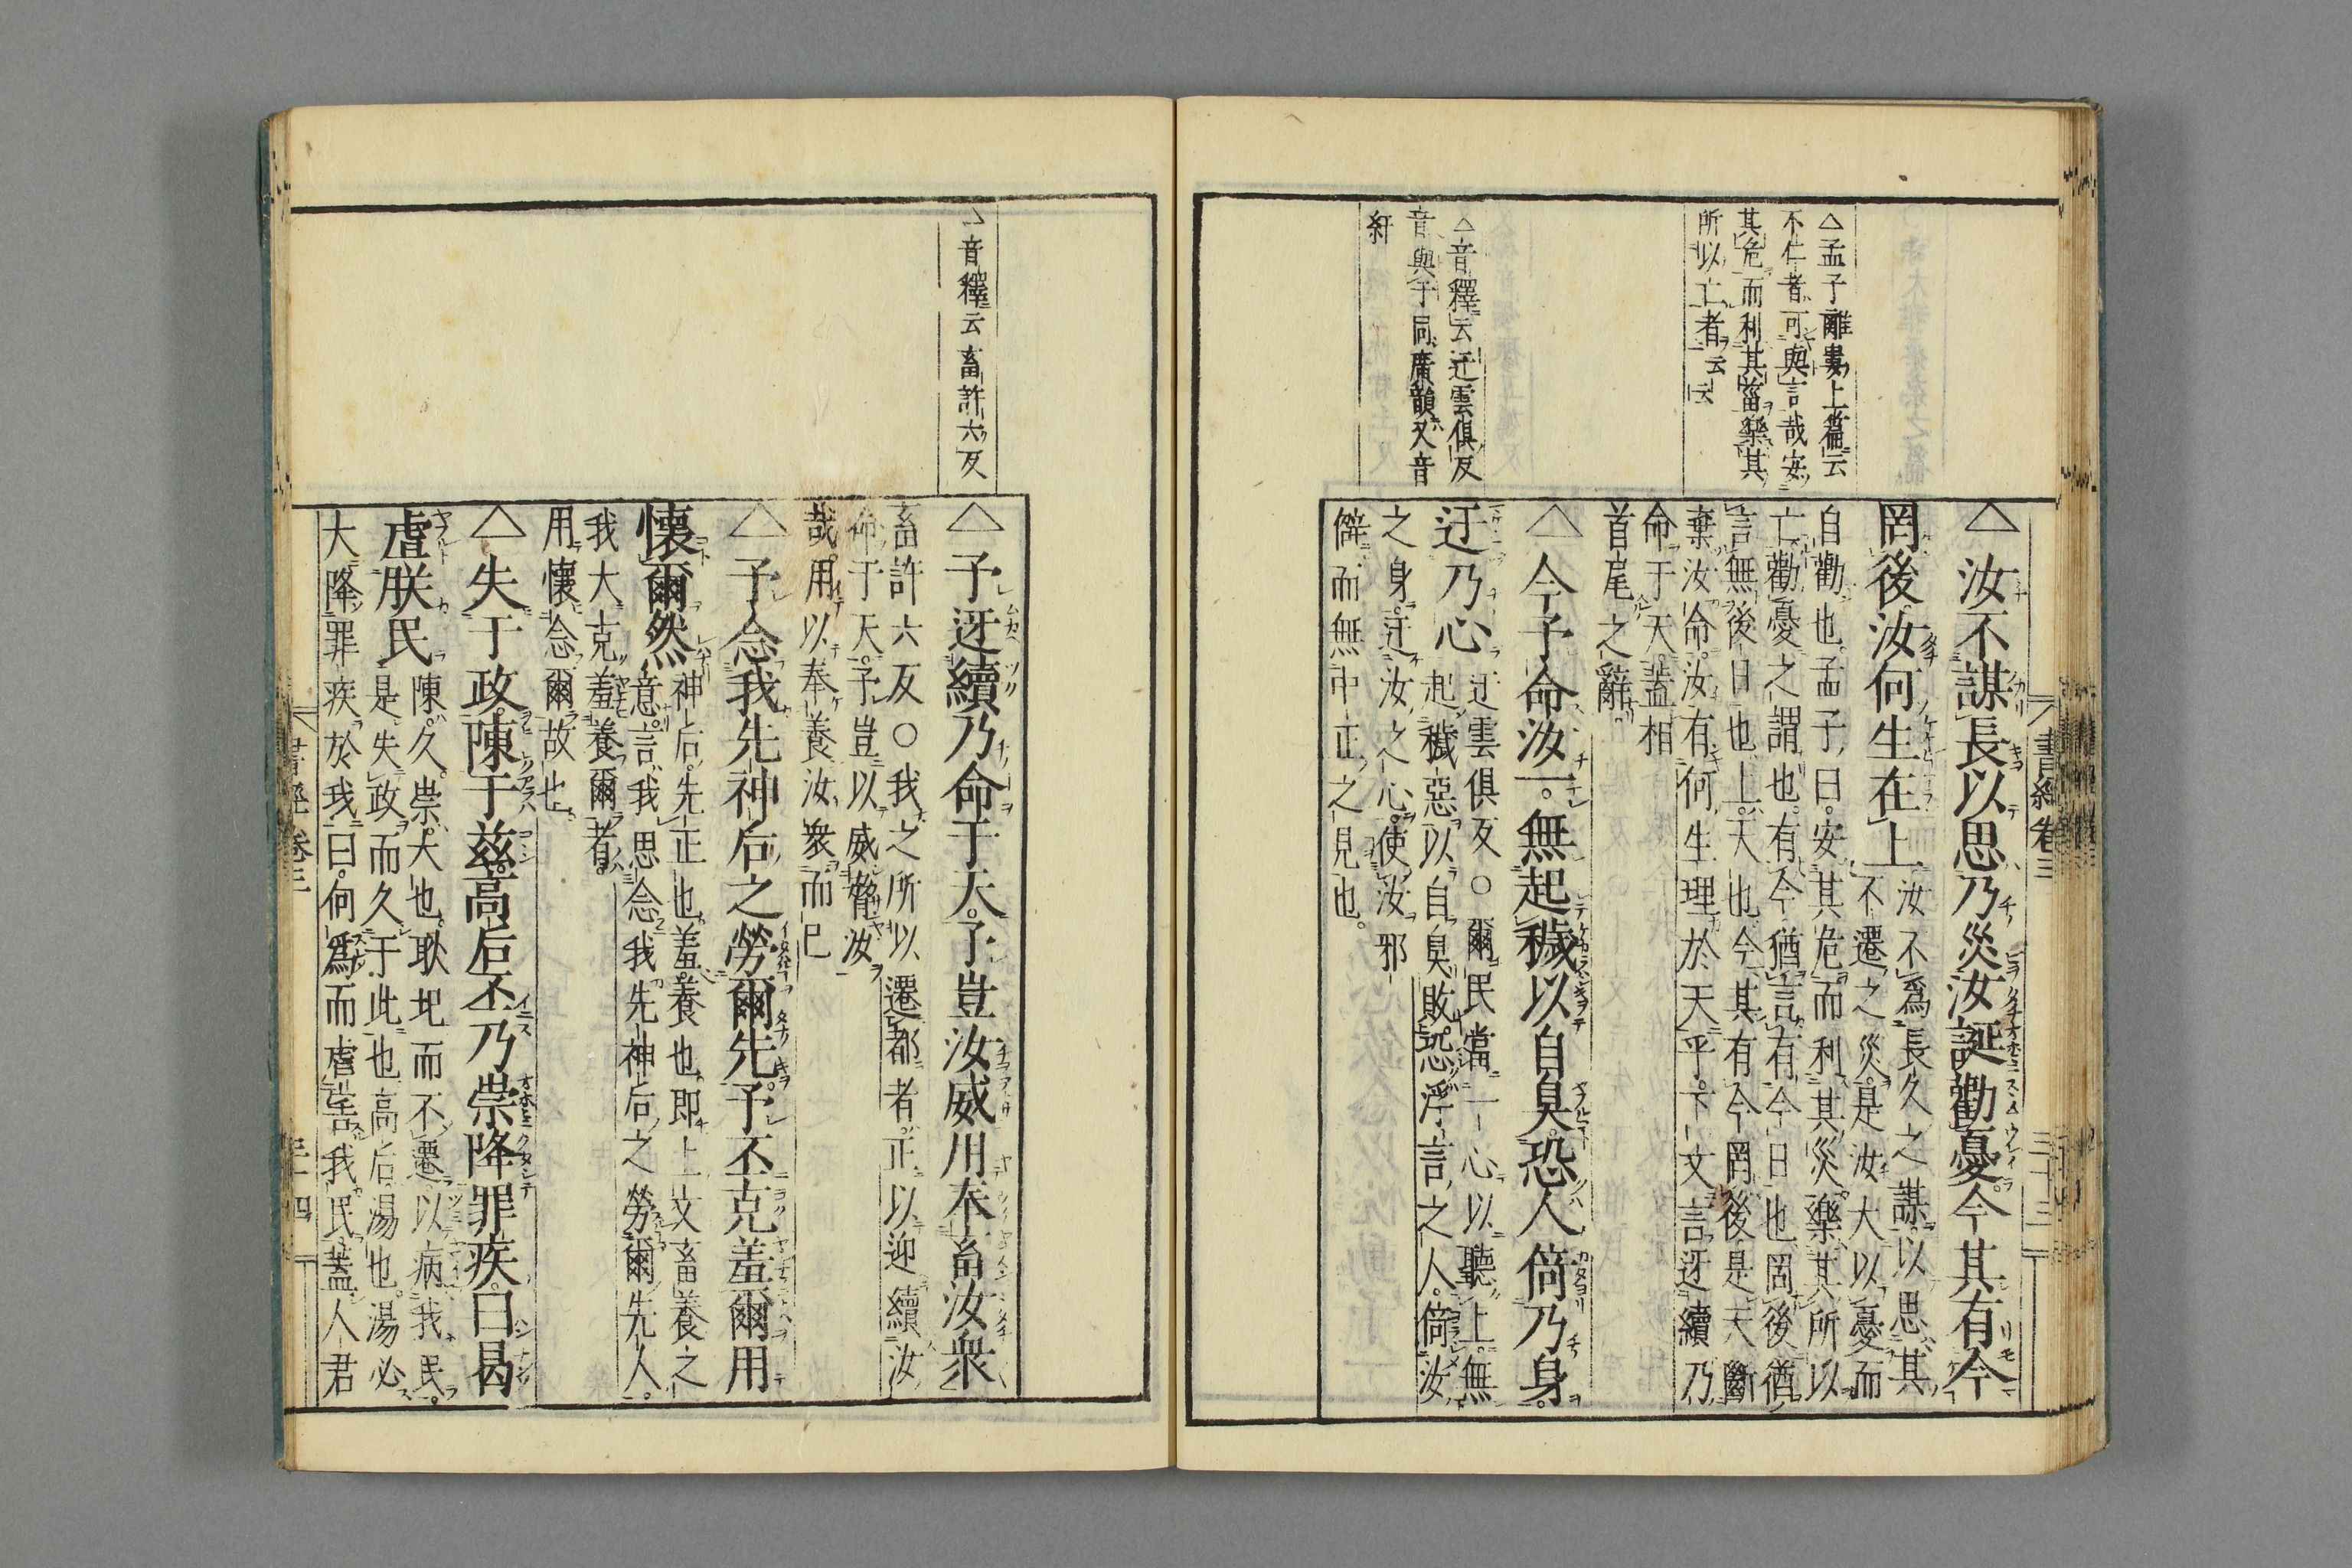 書經卷三
三十三
△孟子離婁上篇云
不仁者可與言哉安
其危而利其菑樂其
所以亡者云云
△音釋云迂雲俱反
音與于同廣韻又音
紆
△汝不謀長以思乃災汝誕勸憂今其有今
罔後汝何生在上
汝不爲長久之謀以思其
不遷之災是汝大以憂而
自勸也孟子曰安其危而利其災樂其所以
亡勸憂之謂也有今猶言有今日也罔後猶
言無後日也上天也今其有今罔後是天斷
棄汝命汝有何生理於天乎下文言迓續乃
命于天蓋相
首尾之辭
△今予命汝一無起穢以自臭恐人倚乃身
迂乃心
迂雲俱反○爾民當一心以聽上無
起穢惡以自臭敗恐浮言之人倚汝
之身迂汝之心使汝邪
僻而無中正之見也
△音釋云畜許六反
△予迓續乃命于天予豈汝威用奉畜汝衆
畜許六反○我之所以遷都者正以迎續汝
命于天予豈以威脅汝
哉用以奉養汝衆而已
△予念我先神后之勞爾先予丕克羞爾用
懷爾然
神后先正也羞養也即上文畜養之
意言我思念我先神后之勞爾先人
我大克羞養爾者
用懷念爾故也
△失于政陳于茲高后丕乃崇降罪疾曰曷
虐朕民
陳久崇大也耿圯而不遷以病我民
是失政而久于此也高后湯也湯必
大降罪疾於我曰何爲而虐害我民蓋人君
書經卷三
三十四